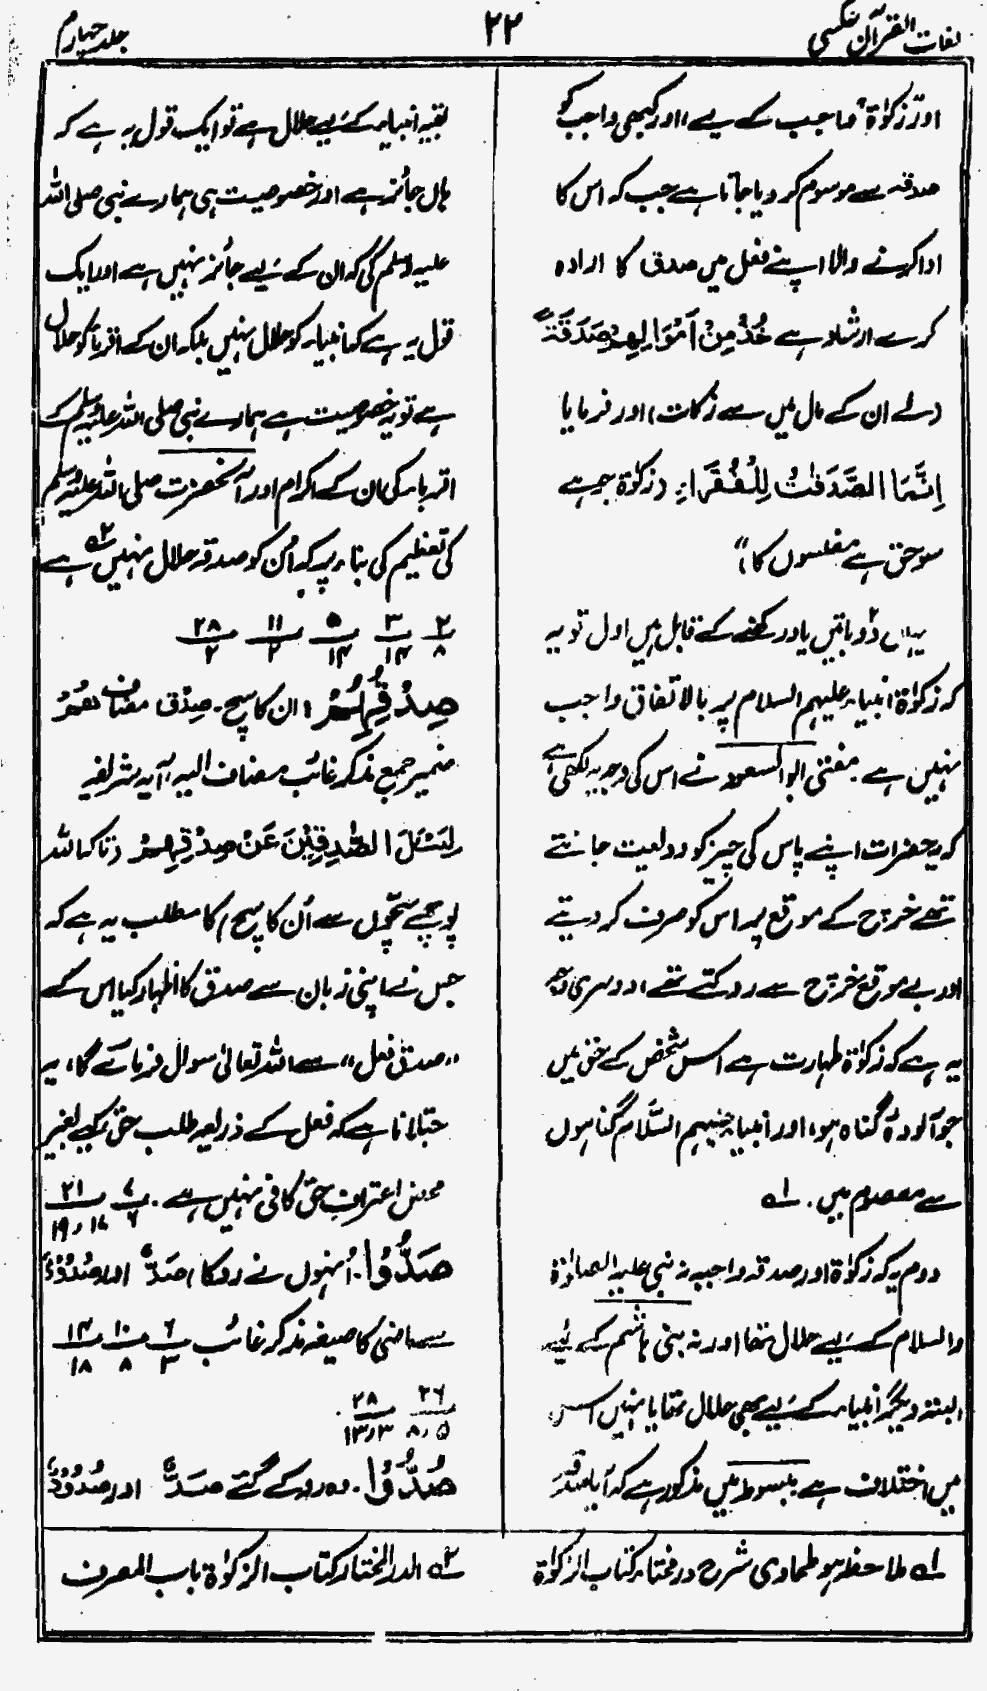 لغات القرآن عکسی
۲۲
جلد چہارم
اور زکوٰۃ صاحب کے لیے، اور کبھی واجب کو
صدقہ سے موسوم کر دیا جاتا ہے جب کہ اس کا
ادا کرنے والا اپنے فعل میں صدق کا ارادہ
کرے ارشاد ہے خُذْ مِنْ اَمْوَالِهِمْ صَدَقَةً
(لے ان کے مال میں سے زکات) اور فرمایا
اِنَّمَا الصَّدَقٰتُ لِلْفُقَرَاءِ (زکوٰۃ جو ہے
سو حق ہے مفلسوں کا)"
یہاں دو باتیں یاد رکھنے کے قابل ہیں اول تو یہ
کہ زکوٰۃ انبیاء علیہم السلام پر بالاتفاق واجب
نہیں ہے۔ مفتی ابو السعود نے اس کی وجہ یہ لکھی ہے
کہ یہ حضرات اپنے پاس کی چیز کو ودلعیت جانتے
تھے خرچ کے موقع پر اس کو صرف کر دیتے
اور بے موقع خرچ سے روکتے تھے، دوسری وجہ
یہ ہے کہ زکوٰۃ طہارت ہے اس شخص کے حق میں
جو آلودۂ گناہ ہو، اور انبیاء علیہم السّلام گناہوں
سے معصوم ہیں۔ لہ
دوم یہ کہ زکوٰۃ اور صدقہ واجبہ نہ نبی علیہ الصلوٰۃ
والسلام کے لیے حلال تھا اور نہ بنی ہاشم کے لیے
البتہ دیگر انبیاء کے لیے بھی حلال تھا یا نہیں اس
میں اختلاف ہے مبسوط میں مذکور ہے کہ آیا صدقہ
لہ ملاحظہ ہو طحاوی شرح درمختار کتاب الزکوٰۃ
بقیہ انبیاء کے لیے حلال ہے تو ایک قول یہ ہے کہ
ہاں جائز ہے اور خصوصیت ہی ہمارے نبی صلی اللہ
علیہ وسلم کی کہ ان کے لیے جائز نہیں ہے اور ایک
قول یہ ہے کہ انبیاء کو حلال نہیں بلکہ ان کے اقرباء کو حلال
ہے تو یہ خصوصیت ہے ہمارے نبی صلی اللہ علیہ وسلم کے
اقرباء کی ان کے اکرام اور آنحضرت صلی اللہ علیہ وسلم
کی تعظیم کی بناء پر کہ اُن کو صدقہ حلال نہیں ۲ہ ہے
۲/۸ ۳/۱۴ ۵/۱۴ ۱۱/۲ ۲۸/۲
صِدْقِهِمْ: ان کا سچ۔ صِدْق مضاف هُمْ
ضمیر جمع مذکر غائب مضاف الیہ، آیہ شریفہ
لِيَسْئَلَ الصّٰدِقِيْنَ عَنْ صِدْقِهِمْ (تاکہ اللہ
پوچھے سچّوں سے اُن کا سچ) کا مطلب یہ ہے کہ
جس نے اپنی زبان سے صدق کا اظہار کیا اس کے
"صدق فعل" سے اللہ تعالیٰ سوال فرمائے گا، یہ
جتلانا ہے کہ فعل کے ذریعہ طلب حق کیے بغیر
محض اعتراف حق کافی نہیں ہے۔ ۷/۶ ۲۱/۱۹،۱۸
صَدُّوْا۔ اُنہوں نے روکا (صَدٌّ اور صُدُوْدٌ)
سے ماضی کا صیغہ مذکر غائب ۶/۳ ۱۰/۸ ۱۴/۱۸
۲۶/۸،۵ ۲۸/۱۳،۳
صُدُّوْا۔ وہ روکے گئے صَدٌّ اور صُدُوْدٌ
۲ہ الدر المختار کتاب الزکوٰۃ باب المصرف